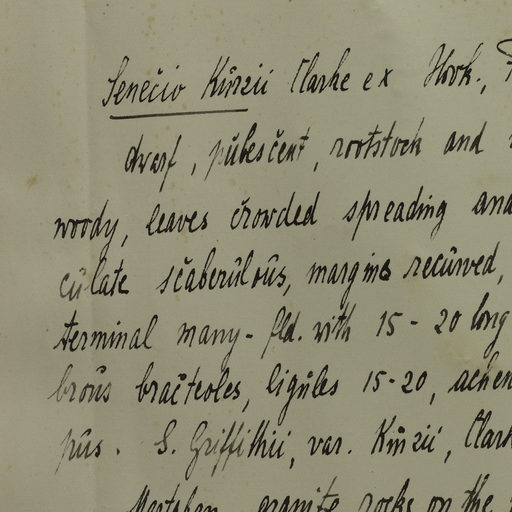 Senecio Kurzii Clarke ex Hook.,
dwarf, pubescent, rootstock and
woody, leaves crowded spreading and
culate scaberulous, margins recurved,
terminal many-fld. with 15-20 long
brous bracteoles, ligules 15-20, achen
pus. S. Griffithii, var. Kurzii, Clark
Martaban granite rocks on the